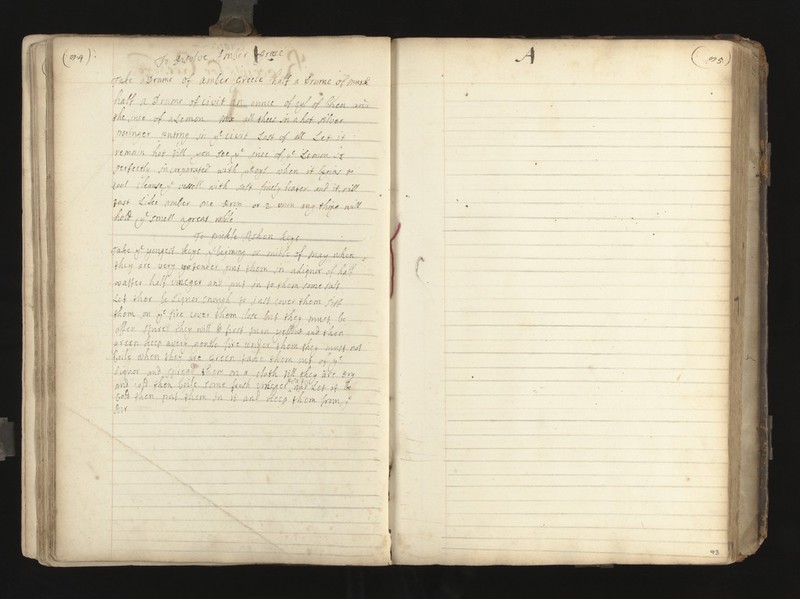 To desolve Amber Grece
Take a Drame of amber Greece half a Drame of musk
half a Drame of Civit an ounce of of Ben
the juce of a Lemon all these in a hot silver
poringer in yᵉ Civit Last of all Let it
remain hot till you see yᵉ juce of yᵉ Lemon is
perfectly incorporated with when it begins to
cool Cleanse yᵉ vesell with salt finely beaten and it will
Last Like amber one drop or 2 upon any thing will
hold yᵉ smell a great while
To pickle Ashen keys
Take yᵉ youngest keys of May when
they are very tender put them in a liquor of half
watter half vineger and put on to them some salt
Let there be Liquor enough to Just cover them sett
them on yᵉ fire cover them close but they must be
often stired they will first turn yellow and then
green keep a very gentle fire under them they must not
boile when they are green take them out of yᵉ
Liquor and spread them on a cloth till they are dry
and cold then boile some fresh vineger and Let it be
Cold then put them in it and keep them from yᵉ
Air
A
43